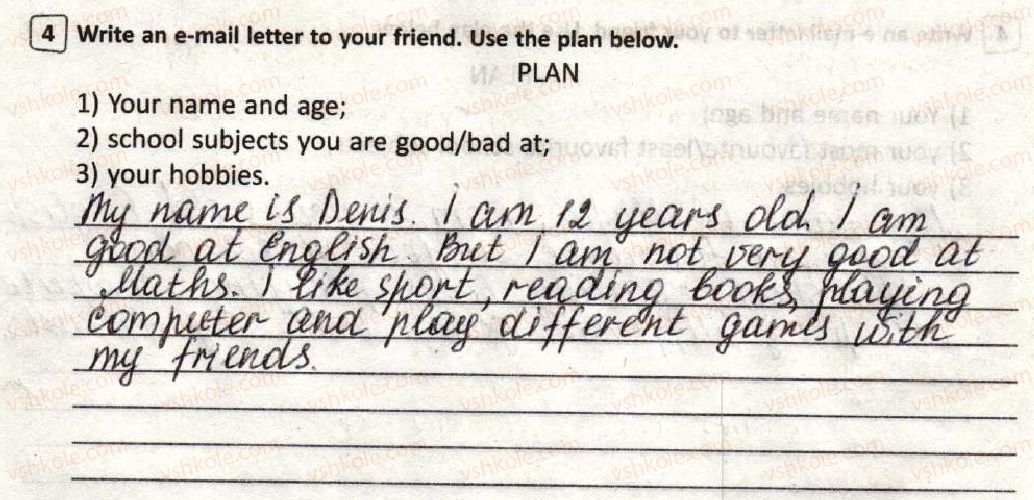 4 Write an e-mail letter to your friend. Use the plan below.
PLAN
1) Your name and age;
2) school subjects you are good/bad at;
3) your hobbies.
My name is Denis. I am 12 years old. I am
good at English. But I am not very good at
Maths. I like sport, reading books, playing
computer and play different games with
my friends.